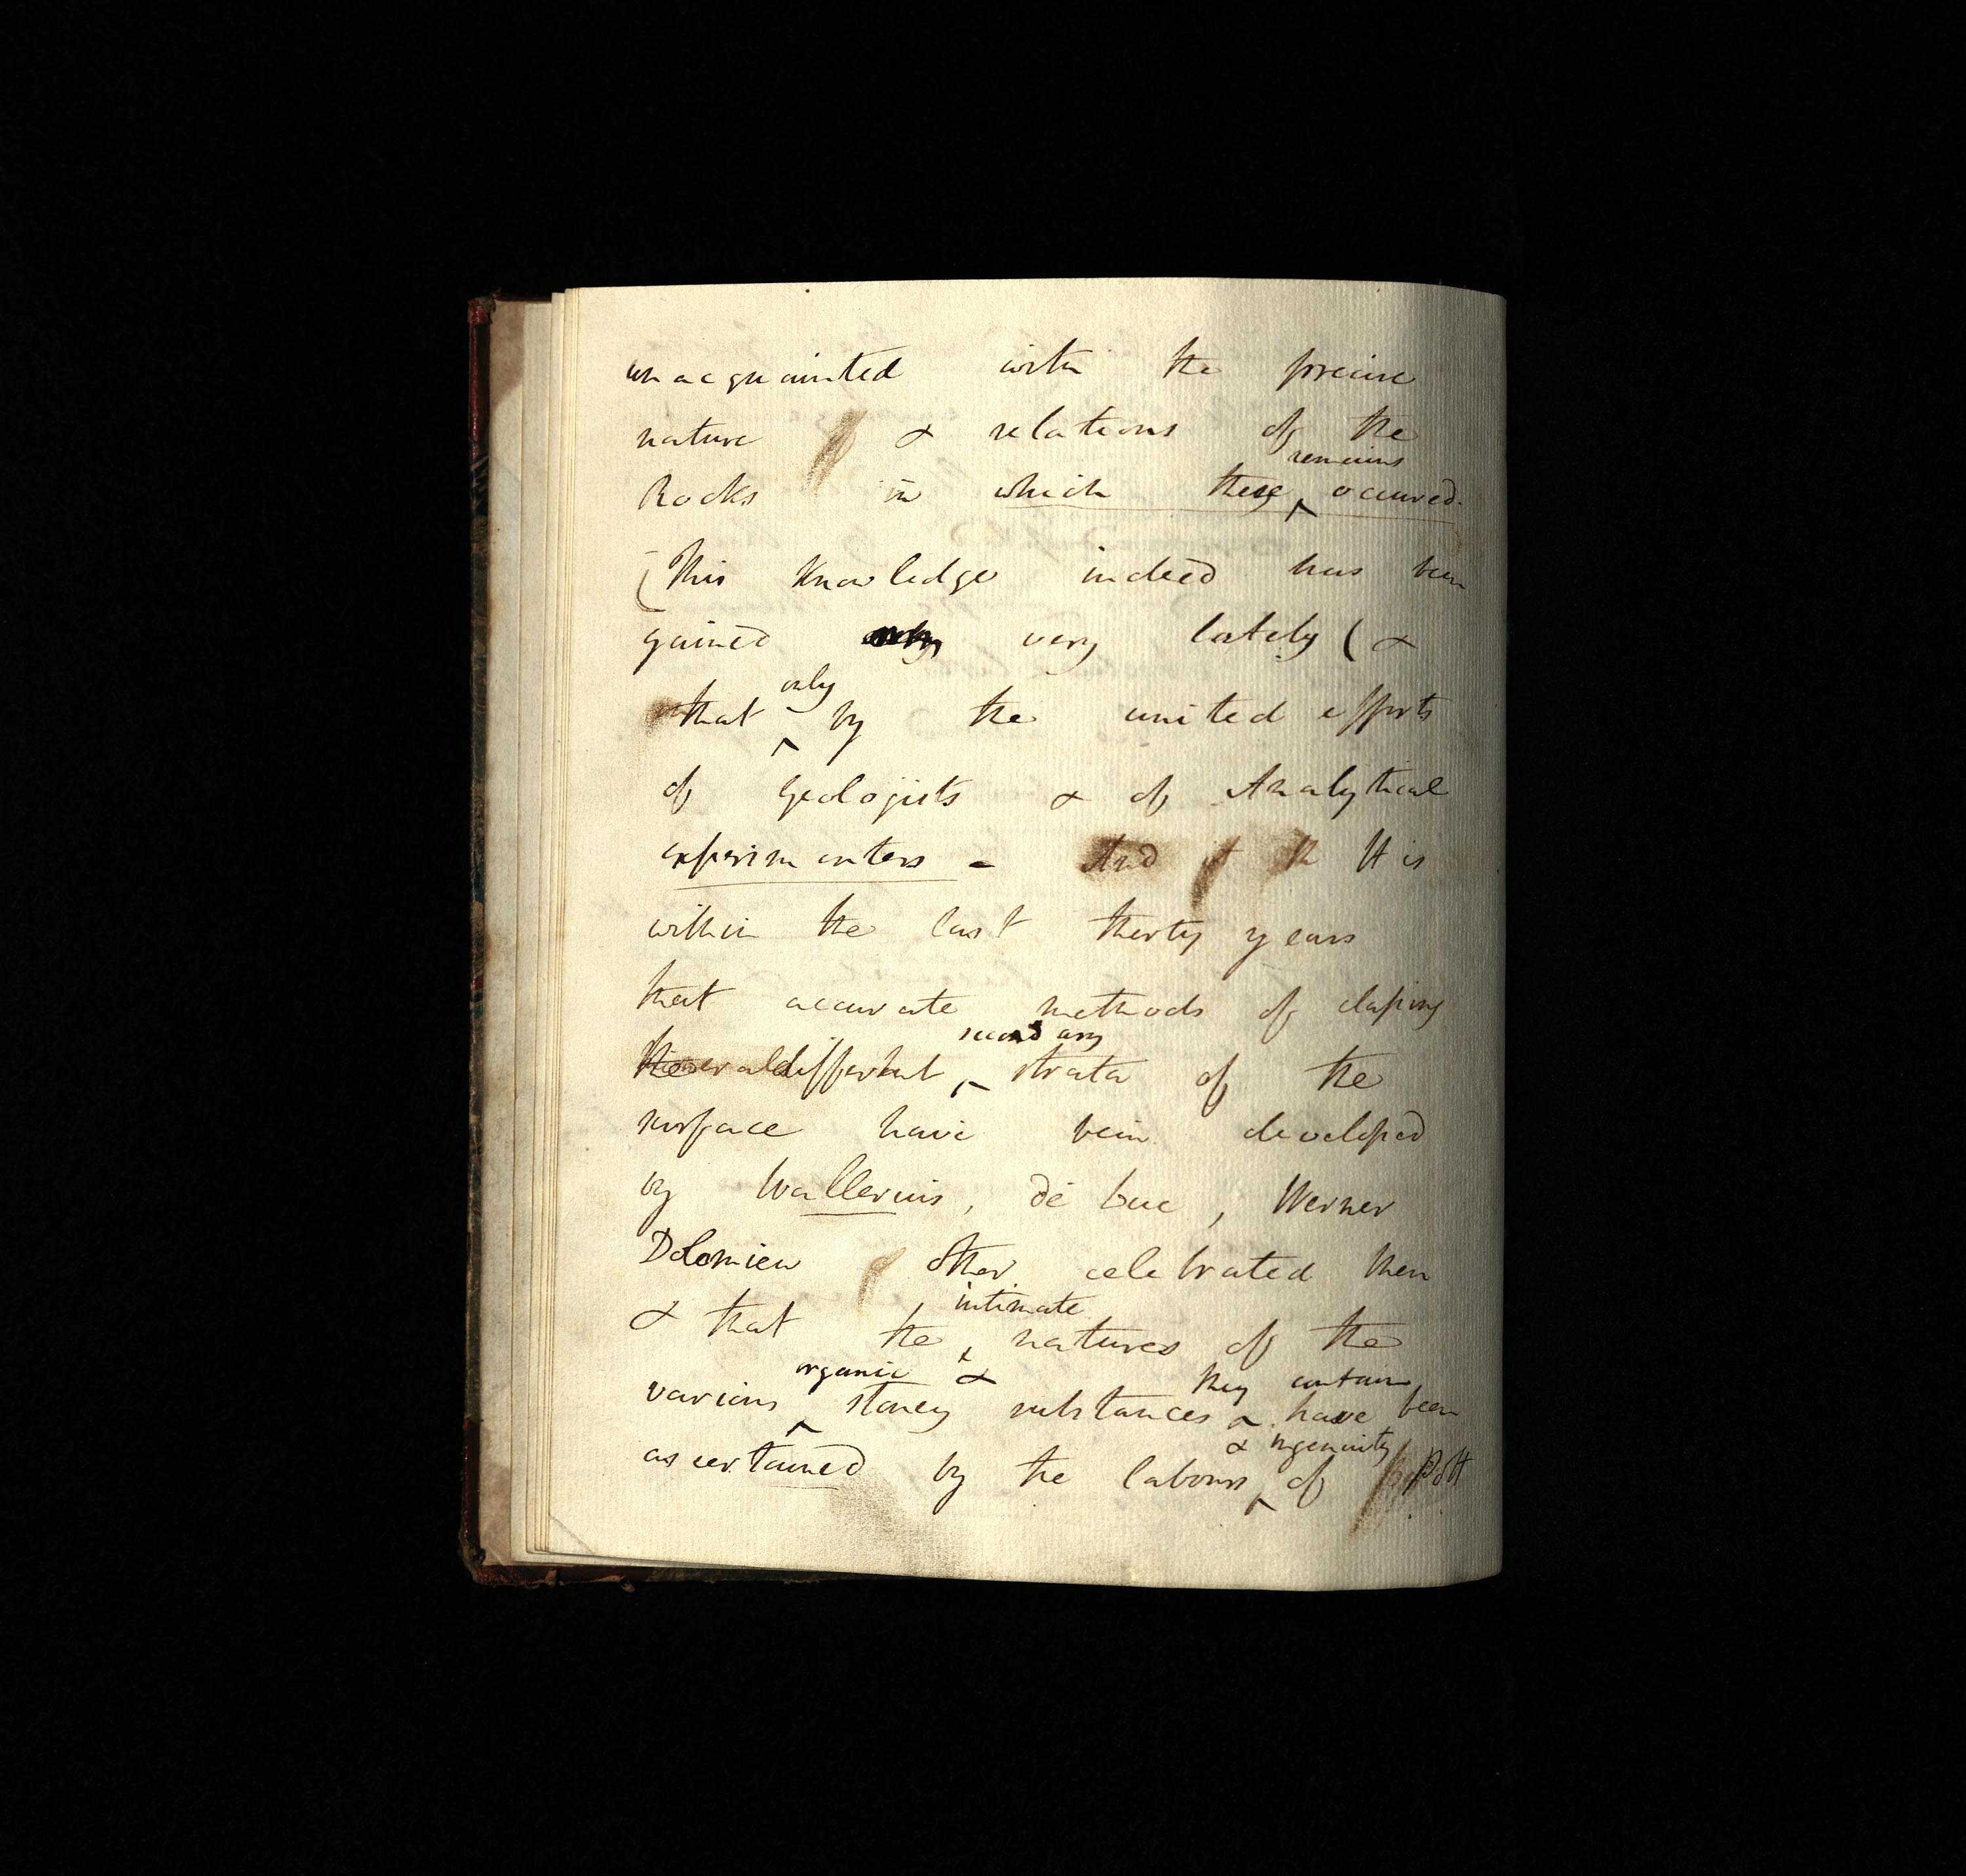 unacquainted with the precise
nature & relations of the
remains
Rocks in which these occured.
(This Knowledge indeed has been
gained very lately (&
only
that by the united efforts
of Geologists & of Analytical
experimenters - And It is
within the last thirty years
that accurate methods of classing
secondary
different strata of the
surface have been developed
by Wallerius, de Luc, Werner
Dolomieu other celebrated Men
intimate
& that the natures of the
organic & they contain
various stoney substances have been
& ingenuity
ascertained by the labours of Pott